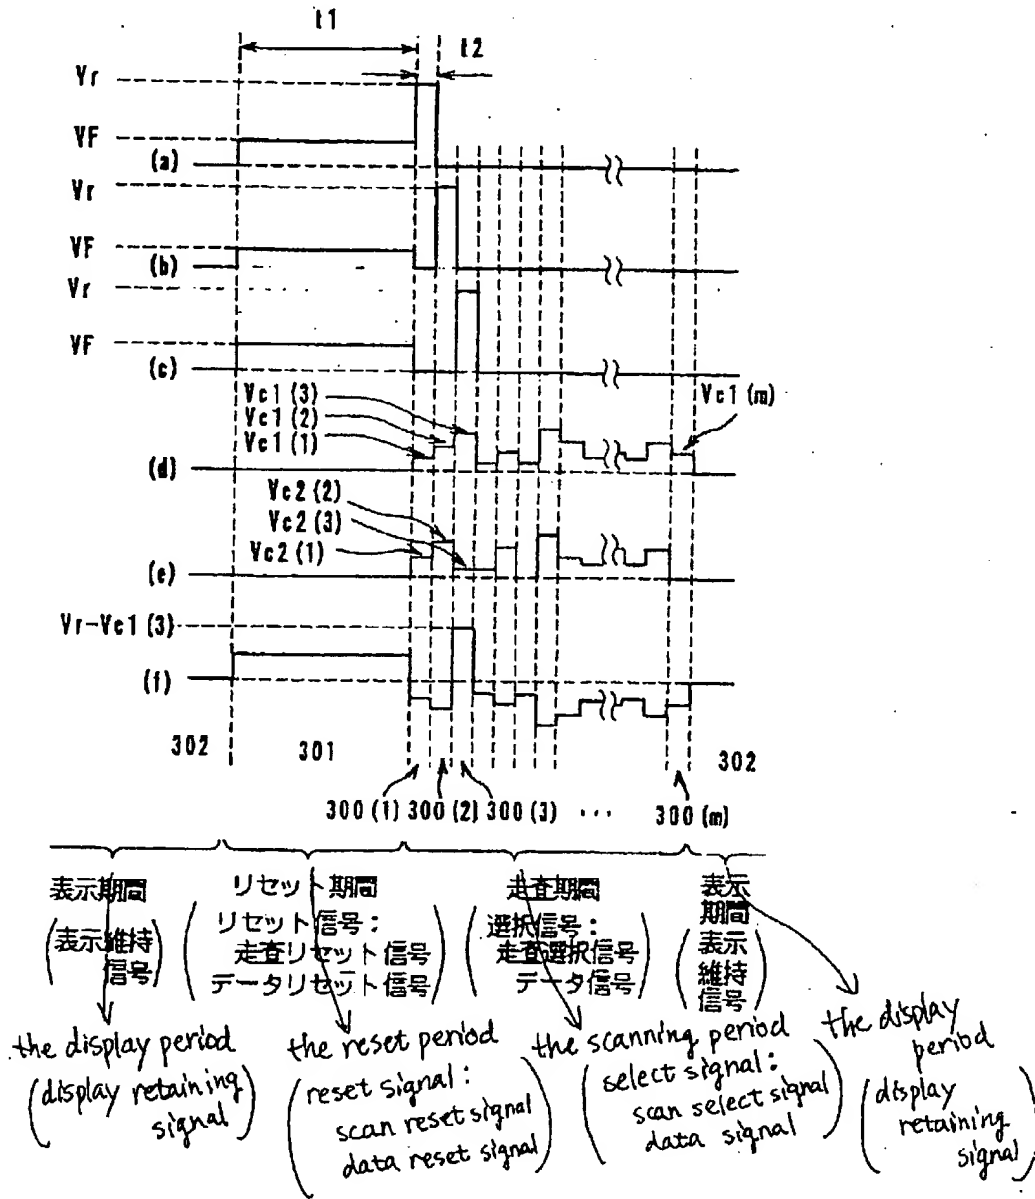 t1
t2
Vr
VF
(a)
Vr
VF
(b)
Vr
VF
(c)
Vc1(3)
Vc1(2)
Vc1(1)
Vc1(m)
(d)
Vc2(2)
Vc2(3)
Vc2(1)
(e)
Vr-Vc1(3)
(f)
302
301
302
300(1) 300(2) 300(3) ··· 300(m)
表示期間
(表示維持
信号)
リセット期間
(リセット信号:
走査リセット信号
データリセット信号)
走査期間
(選択信号:
走査選択信号
データ信号)
表示
期間
(表示
維持
信号)
the display period
(display retaining
signal)
the reset period
(reset signal:
scan reset signal
data reset signal)
the scanning period
(select signal:
scan select signal
data signal)
the display
period
(display
retaining
signal)